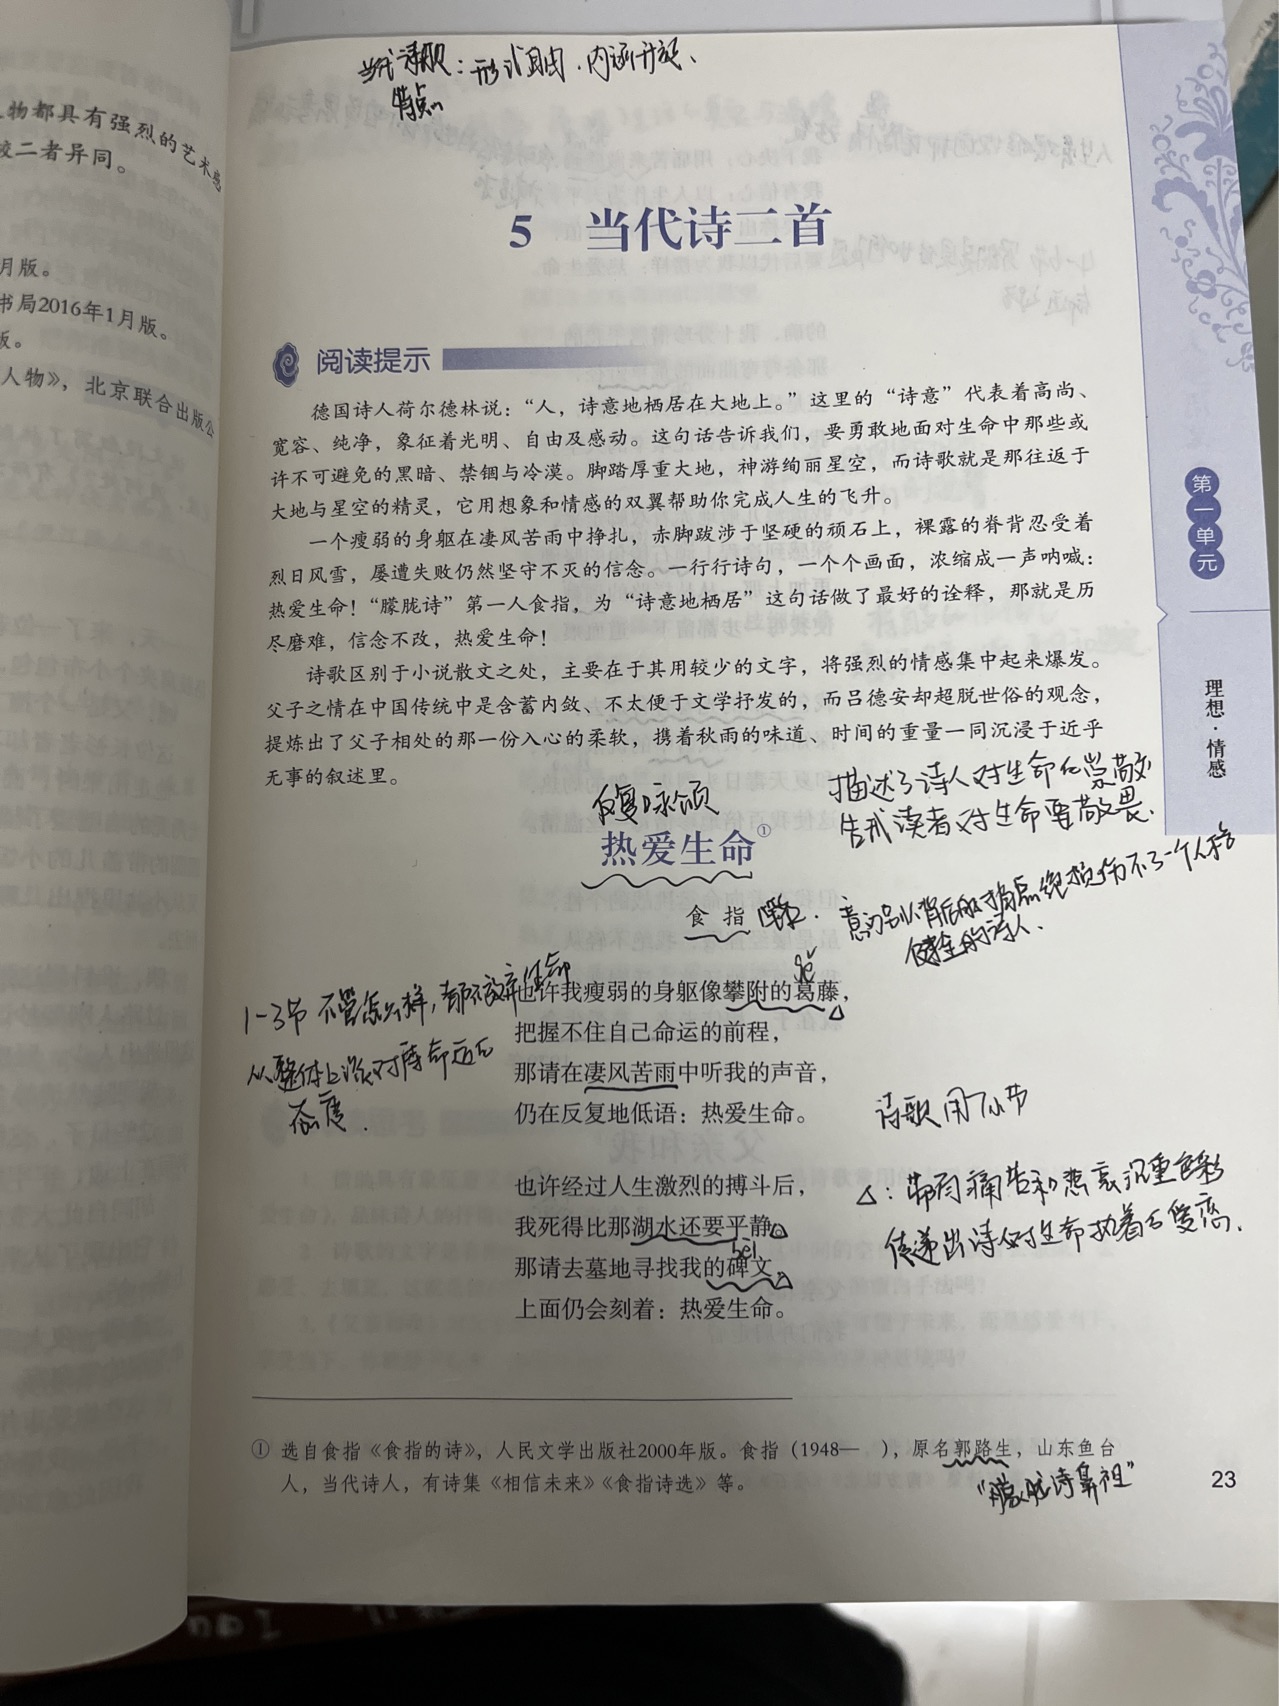 当代诗歌：形式自由、内涵开放、
特点
物都具有强烈的艺术感
较二者异同。
月版。
书局2016年1月版。
版。
人物》，北京联合出版公
5 当代诗二首
阅读提示
德国诗人荷尔德林说：“人，诗意地栖居在大地上。”这里的“诗意”代表着高尚、
宽容、纯净，象征着光明、自由及感动。这句话告诉我们，要勇敢地面对生命中那些或
许不可避免的黑暗、禁锢与冷漠。脚踏厚重大地，神游绚丽星空，而诗歌就是那往返于
大地与星空的精灵，它用想象和情感的双翼帮助你完成人生的飞升。
一个瘦弱的身躯在凄风苦雨中挣扎，赤脚跋涉于坚硬的顽石上，裸露的脊背忍受着
烈日风雪，屡遭失败仍然坚守不灭的信念。一行行诗句，一个个画面，浓缩成一声呐喊：
热爱生命！“朦胧诗”第一人食指，为“诗意地栖居”这句话做了最好的诠释，那就是历
尽磨难，信念不改，热爱生命！
诗歌区别于小说散文之处，主要在于其用较少的文字，将强烈的情感集中起来爆发。
父子之情在中国传统中是含蓄内敛、不太便于文学抒发的，而吕德安却超脱世俗的观念，
提炼出了父子相处的那一份入心的柔软，携着秋雨的味道、时间的重量一同沉浸于近乎
无事的叙述里。
第一单元
理想·情感
反复咏颂
描述了诗人对生命的崇敬
告戒读者对生命要敬畏.
热爱生命①
食指
意为别人背后的指点绝损伤不了一个人格
健全的诗人.
gé
1-3节 不管怎么样，都不放弃生命
从整体上 对
态度.
也许我瘦弱的身躯像攀附的葛藤，
把握不住自己命运的前程，
那请在凄风苦雨中听我的声音，
仍在反复地低语：热爱生命。
诗歌用7小节
也许经过人生激烈的搏斗后，
我死得比那湖水还要平静。
bēi
那请去墓地寻找我的碑文，
上面仍会刻着：热爱生命。
△：带有痛苦和悲哀沉重色彩
传递出诗人对生命执着
① 选自食指《食指的诗》，人民文学出版社2000年版。食指（1948— ），原名郭路生，山东鱼台
人，当代诗人，有诗集《相信未来》《食指诗选》等。
“朦胧诗鼻祖”
23